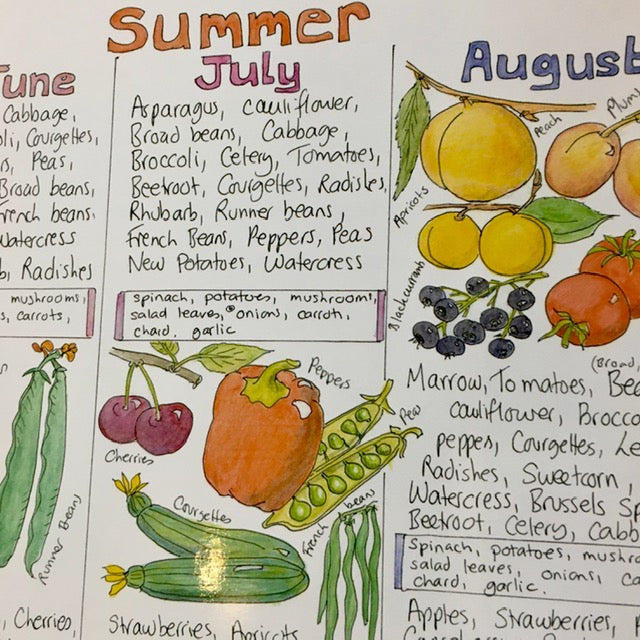 Summer
June
Cabbage,
Courgettes,
Peas,
Broad beans,
French beans
Watercress
Radishes
mushrooms,
carrots,
Runner Beans
Cherries,
July
Asparagus, cauliflower,
Broad beans, Cabbage,
Broccoli, Celery, Tomatoes,
Beetroot, Courgettes, Radishes,
Rhubarb, Runner beans,
French Beans, Peppers, Peas
New Potatoes, Watercress
spinach, potatoes, mushrooms,
salad leaves, onions, carrots,
chard, garlic
Cherries
Peppers
Peas
Courgettes
French beans
Strawberries, Apricots
August
Peach
Plums
Apricots
Blackcurrants
(Broad,
Marrow, Tomatoes,
cauliflower,
peppes, Courgettes,
Radishes, Sweetcorn,
Watercress, Brussels
Beetroot, Celery,
Spinach, potatoes,
salad leaves, onions,
chard, garlic.
Apples, Strawberries,